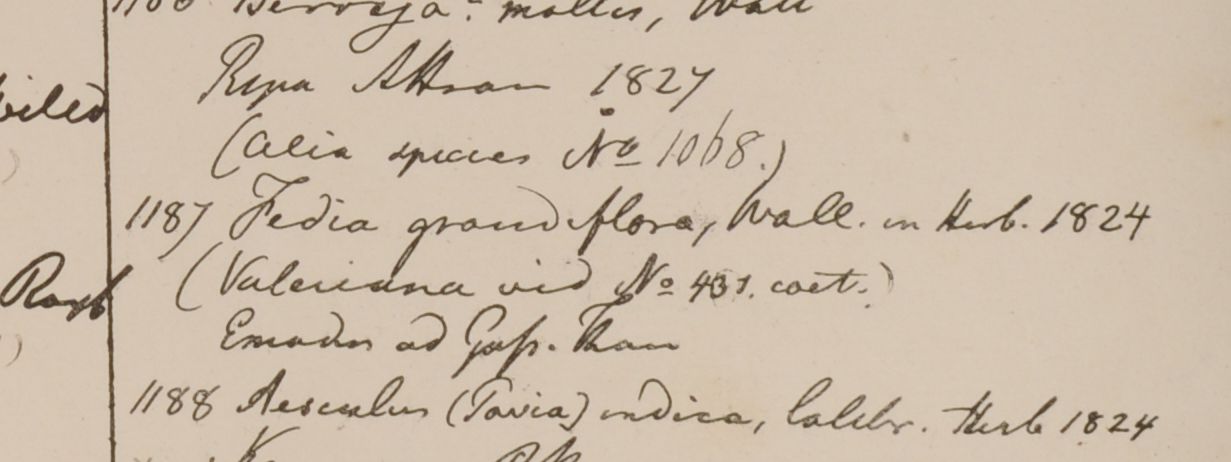 1186 Berrya? mollis, Wall
Ripa Attran 1827
(Alia species No 1068.)
1187 Fedia grandiflora, Wall. in Herb. 1824
(Valeriana vid No 431. caet.)
Roxb
Emodus ad Goss. Than
1188 Aesculus (Pavia) indica, Colebr. Herb 1824